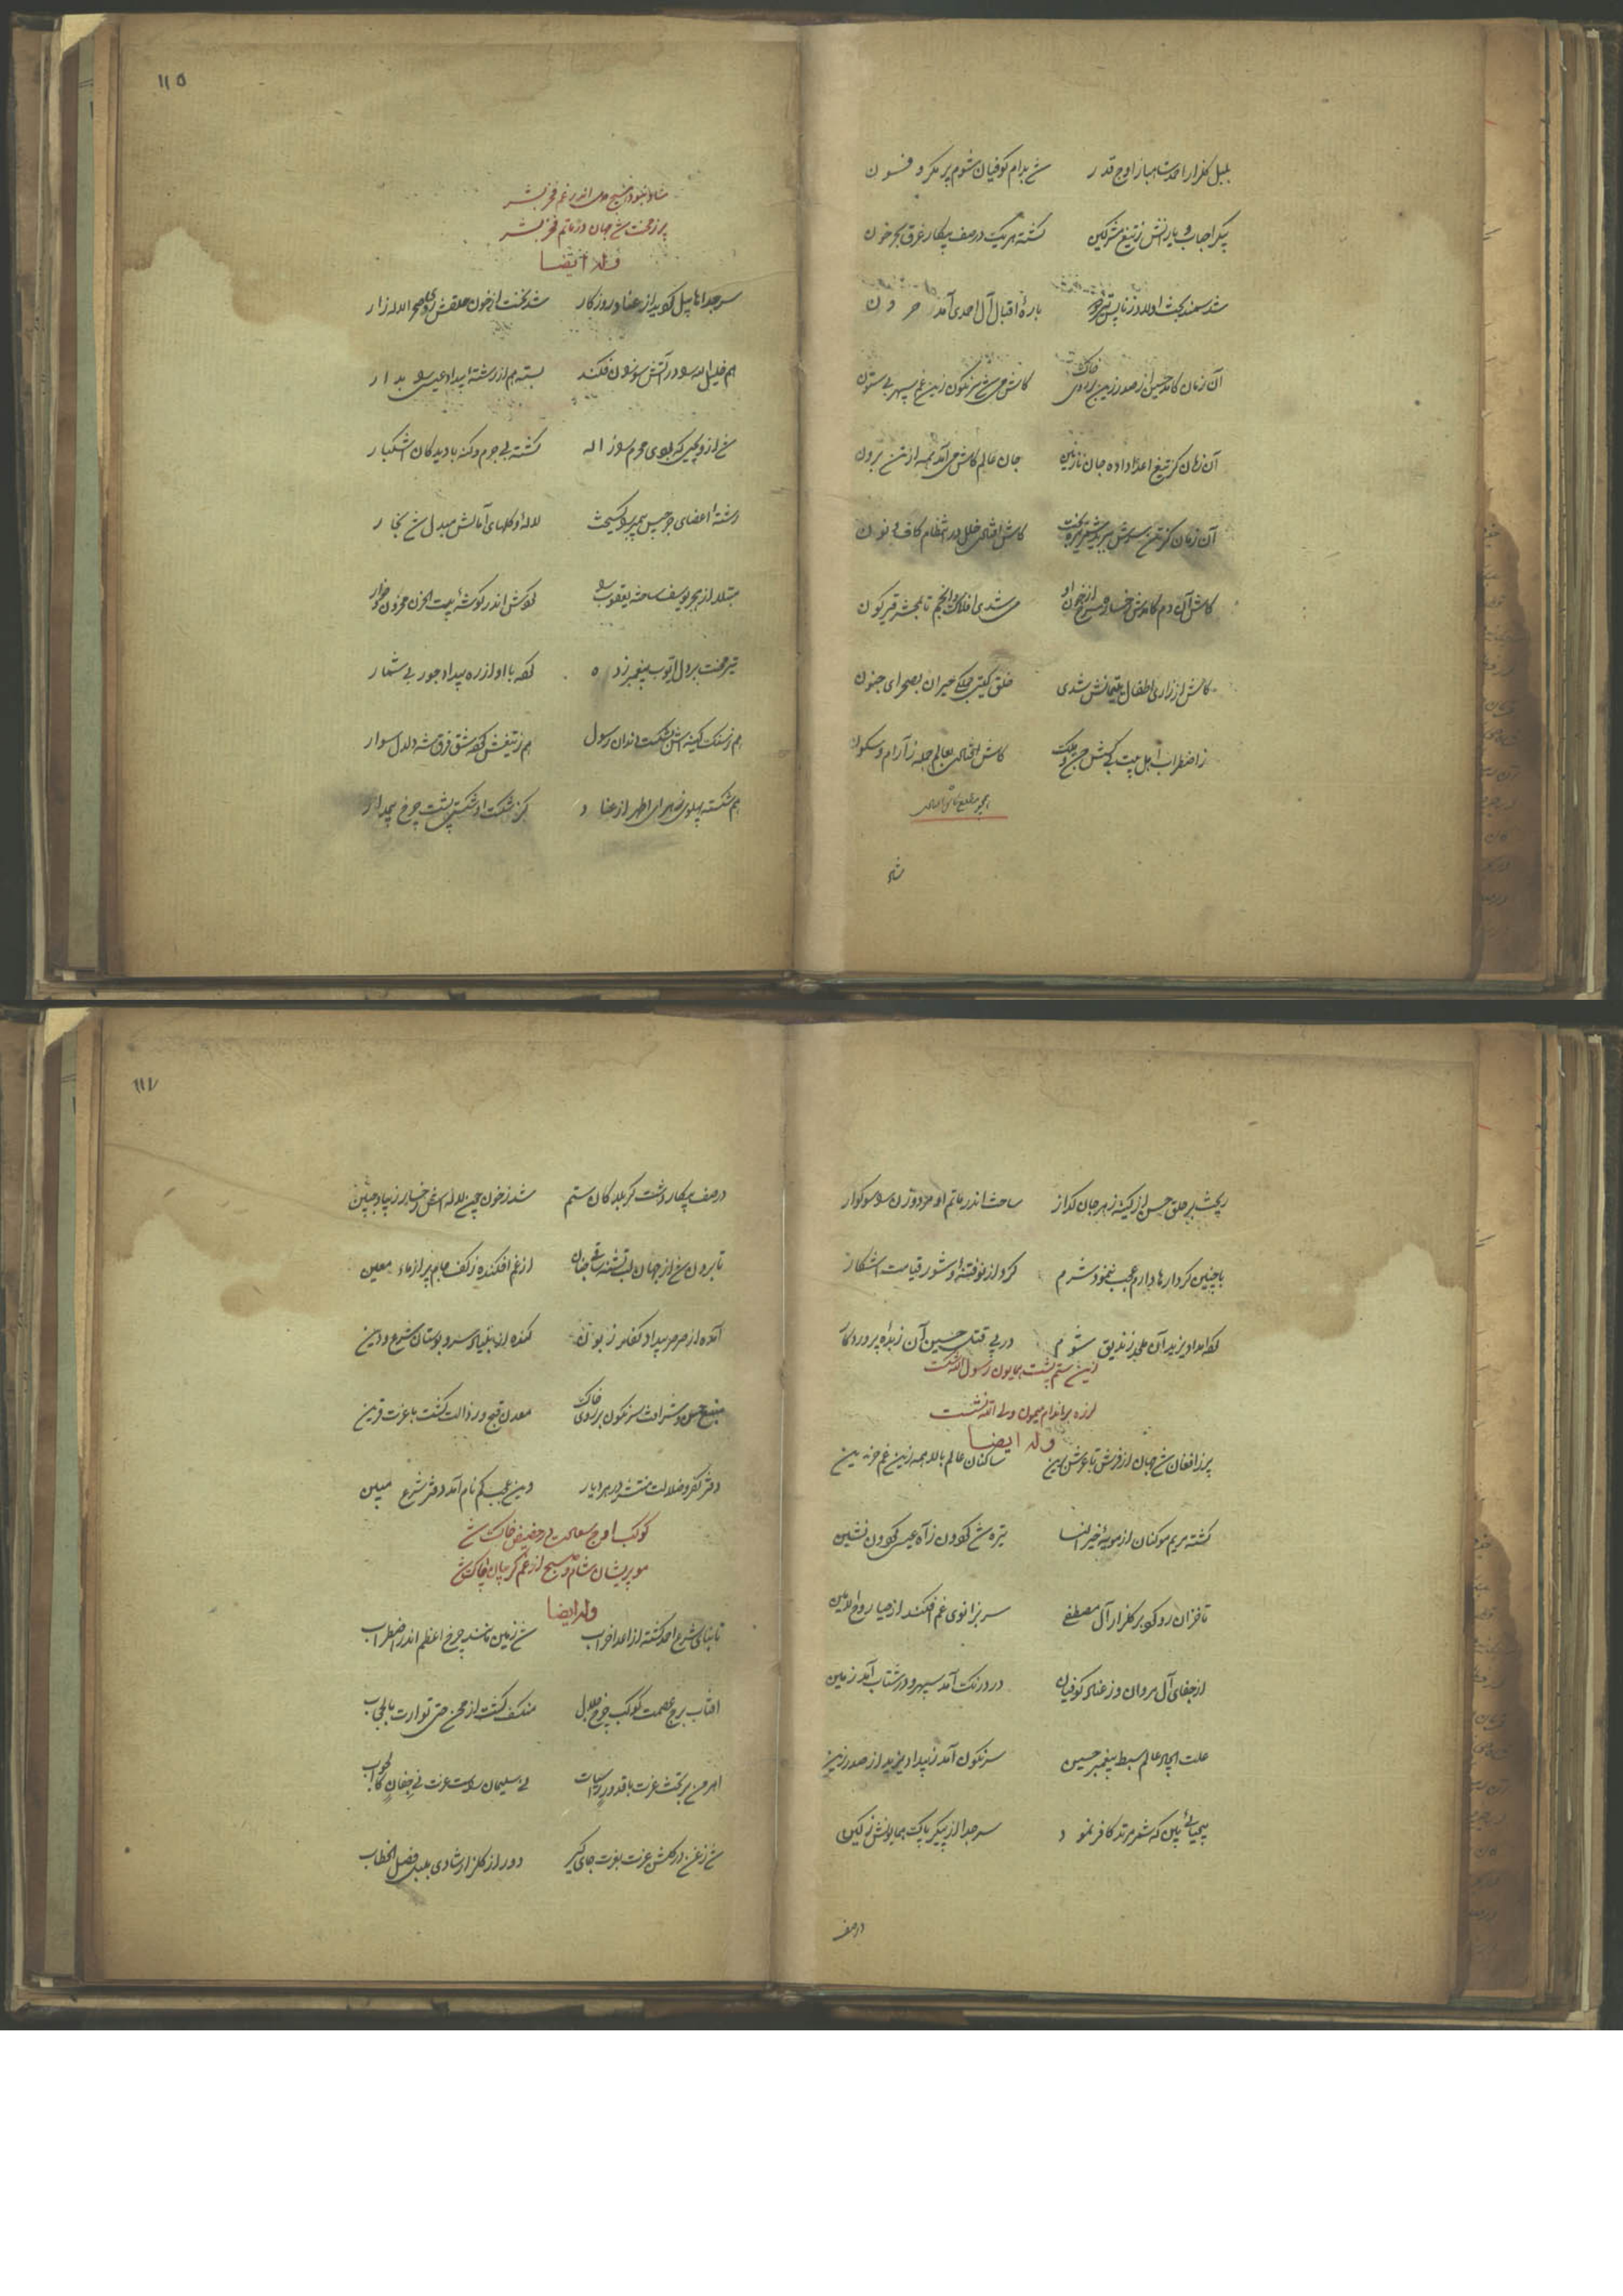 بلبل گلزار احمد شاهباز اوج قدر شد بدام کوفیان شوم پر مکر و فسون
پیکر احباب و یارانش ز تیغ مشرکین گشته هر یک در صف پیکار غرق بحر خون
شد سمند بخت اولاد زنا باره اقبال آل احمدی آمد حرون
آن زمان کامد حسین از صدر زین بر روی خاک کاش می شد سرنگون زین غم سپهر بی ستون
آن زمان کز تیغ اعدا داده جان نازنین جان عالم کاش می آمد همه از تن برون
آن زمان کز تن سرش ببرید شمر کاش افتادی خلل در انتظام کاف و نون
کاش آن دم کامدش رخساره سرخ از خون او می شدی افلاک و انجم تا بمحشر قیرگون
کاش از زاری اطفال یتیمانش شدی خلق گیتی جملگی حیران بصحرای جنون
ز اضطراب اهل بیت بی کسش جن و ملک کاش افتادی بعالم جمله ز آرام و سکون
شاد
۱۱۵
شاد نبود هیچ دل اندر غم فخر بشر
پر ز محنت شد جهان در ماتم فخر بشر
وله ایضا
سر جدا هابیل گردید از عناد روزگار شد ز خون حلقش روی صحرا لاله زار
هم خلیل الله را در آتش سوزان فکند بسته هم از رشته بیداد عیسی را بدار
شد از و یحیی که بودی محرم سوز اله کشته بی جرم و گنه با دیدگان اشکبار
رشته اعضای جرجیس پیمبر را گسیخت لاله و گلهای آمالش مبدل شد بخار
مبتلا از هجر یوسف ساخته یعقوب را کردش اندر گوشه بیت الحزن محزون و خوار
تیر محنت بر دل ایوب پیغمبر زده کرده با او از ره بیداد جور بی شمار
هم ز سنگ کینه اش بشکست دندان رسول هم ز تیغش کرده شق فرق شه دلدل سوار
هم شکسته پهلوی زهرای اطهر از عناد کز شکست او شکستی پشت چرخ بیمدار
ریخت بر حلق حسن از کینه زهر جان گداز ساخت اندر ماتم او مرد و زن را سوگوار
با چنین کردارها دارم عجب ننمود شرم کرد از نو فتنه و شور قیامت آشکار
کرد امداد یزید آن ملحد زندیق شوم در پی قتل حسین آن زبده پروردگار
زین ستم پشت همایون رسول الله شکست
لرزه بر اندام میمون ولی الله نشست
وله ایضا
پر ز افغان شد جهان از فرش تا عرش برین ساکنان عالم بالا همه زین غم حزین
گشته مریم موکنان از مویه خیر النسا تیره شد گردون ز آه عیسی گردون نشین
تا خزان رو کرد بر گلزار آل مصطفی سر بزانوی غم افکند از حیا روح الامین
از جفای آل مروان وز عناد کوفیان در درنگ آمد سپهر و در شتاب آمد زمین
علت ایجاد عالم سبط پیغمبر حسین سرنگون آمد ز بیداد یزید از صدر زین
بیحیائی بین که شمر مرتد کافر نمود سر جدا از پیکر پاک همایونش ز کین
در صف
۱۱۷
در صف پیکار دشت کربلا کان ستم شد ز خون چون لاله اش رخسار زیبا و جبین
تا برون شد از جهان لب تشنه ساقی جنان از غم افکنده ز کف جام پر از ماء معین
آمده از صرصر بیداد کفار زبون کنده از بنیاد سرو بوستان شرع و دین
منبع حسن و شرافت سرنگون بر روی خاک معدن قبح و رذالت گشت با عزت قرین
دفتر کفر و ضلالت منتشر در هر دیار وین عجب گم نام آمد دفتر شرع مبین
کوکب اوج سعادت در حضیض خاک شد
مو پریشان شام و صبح از غم گریبان چاک شد
وله ایضا
تا بنای شرع احمد گشته از اعدا خراب شد زمین مانند چرخ اعظم اندر اضطراب
آفتاب برج عصمت کوکب چرخ جلال منکسف گشت از محن حتی توارت بالحجاب
اهرمن بر تخت عزت با قدور راسیات نی سلیمان راست عزت نی جفان کالجواب
شد زغن در گلشن عزت بفرت جای گیر دور از گلزار شادی بلبل فصل الخطاب